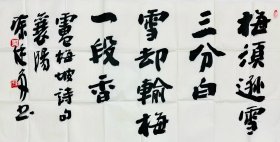 梅須遜雪
三分白
雪却輸梅
一段香
盧梅坡诗句
襄陽